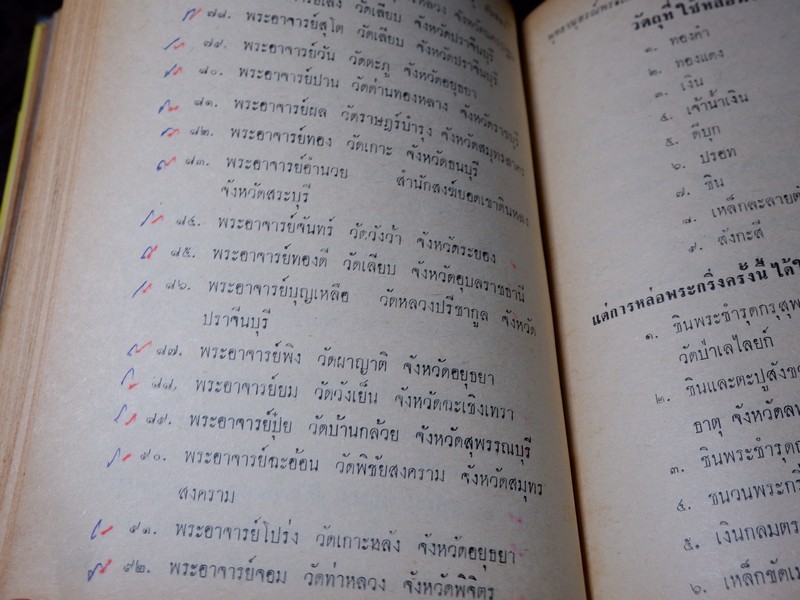 วัดเลียบ
๗๘. พระอาจารย์สุโต วัดเลียบ จังหวัดปราจีนบุรี
๗๙. พระอาจารย์วัน วัดตะภู จังหวัดอยุธยา
๘๐. พระอาจารย์ปาน วัดด่านทองหลาง จังหวัดราชบุรี
๘๑. พระอาจารย์ผล วัดราษฎร์บำรุง จังหวัดสมุทรสาคร
๘๒. พระอาจารย์ทอง วัดเกาะ จังหวัดธนบุรี
๘๓. พระอาจารย์อำนวย สำนักสงฆ์ยอดเขาตินหลง
จังหวัดสระบุรี
๘๔. พระอาจารย์จันทร์ วัดวังว้า จังหวัดระยอง
๘๕. พระอาจารย์ทองดี วัดเลียบ จังหวัดอุบลราชธานี
๘๖. พระอาจารย์บุญเหลือ วัดหลวงปรีชากูล จังหวัด
ปราจีนบุรี
๘๗. พระอาจารย์พิง วัดผาญาติ จังหวัดอยุธยา
๘๘. พระอาจารย์ยม วัดวังเย็น จังหวัดฉะเชิงเทรา
๘๙. พระอาจารย์ปุ๋ย วัดบ้านกล้วย จังหวัดสุพรรณบุรี
๙๐. พระอาจารย์ฉะอ้อน วัดพิชัยสงคราม จังหวัดสมุทร
สงคราม
๙๑. พระอาจารย์โปร่ง วัดเกาะหลัง จังหวัดอยุธยา
๙๒. พระอาจารย์จอม วัดท่าหลวง จังหวัดพิจิตร
วัตถุที่ใช้หล่อ
๑. ทองคำ
๒. ทองแดง
๓. เงิน
๔. เจ้าน้ำเงิน
๕. ดีบุก
๖. ปรอท
๗. ชิน
๘. เหล็กละลายตั
๙. สังกะสี
แต่การหล่อพระกริ่งครั้งนี้ ได้ใ
๑. ชินพระชำรุดกรุสุพ
วัดป่าเลไลยก์
๒. ชินและตะปูสังข
ธาตุ จังหวัดล
๓. ชินพระชำรุด
๔. ชนวนพระกริ
๕. เงินกลมตร
๖. เหล็กขัดเ